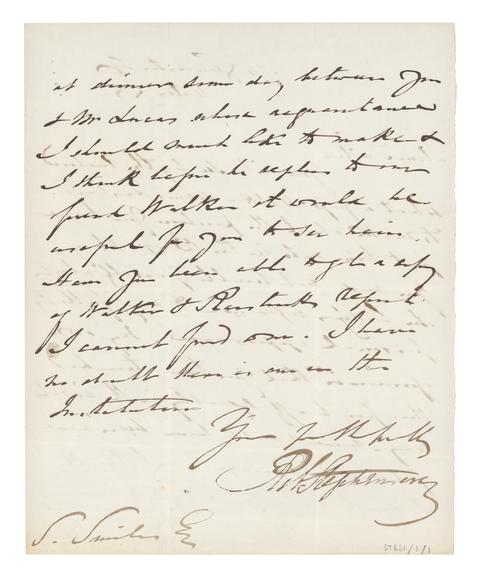 at dinner some day between you
& Mr Lucas whose acquaintance
I should much like to make &
I think before he replies to our
friend Walker it would be
useful for you to see him.
Have you been able to get a copy
of Walker & Rastricks report
I cannot find one. I have
no doubt there is one in the
Institution
Yours faithfully
Robt Stephenson
S. Smiles Esq
STES1/1/1